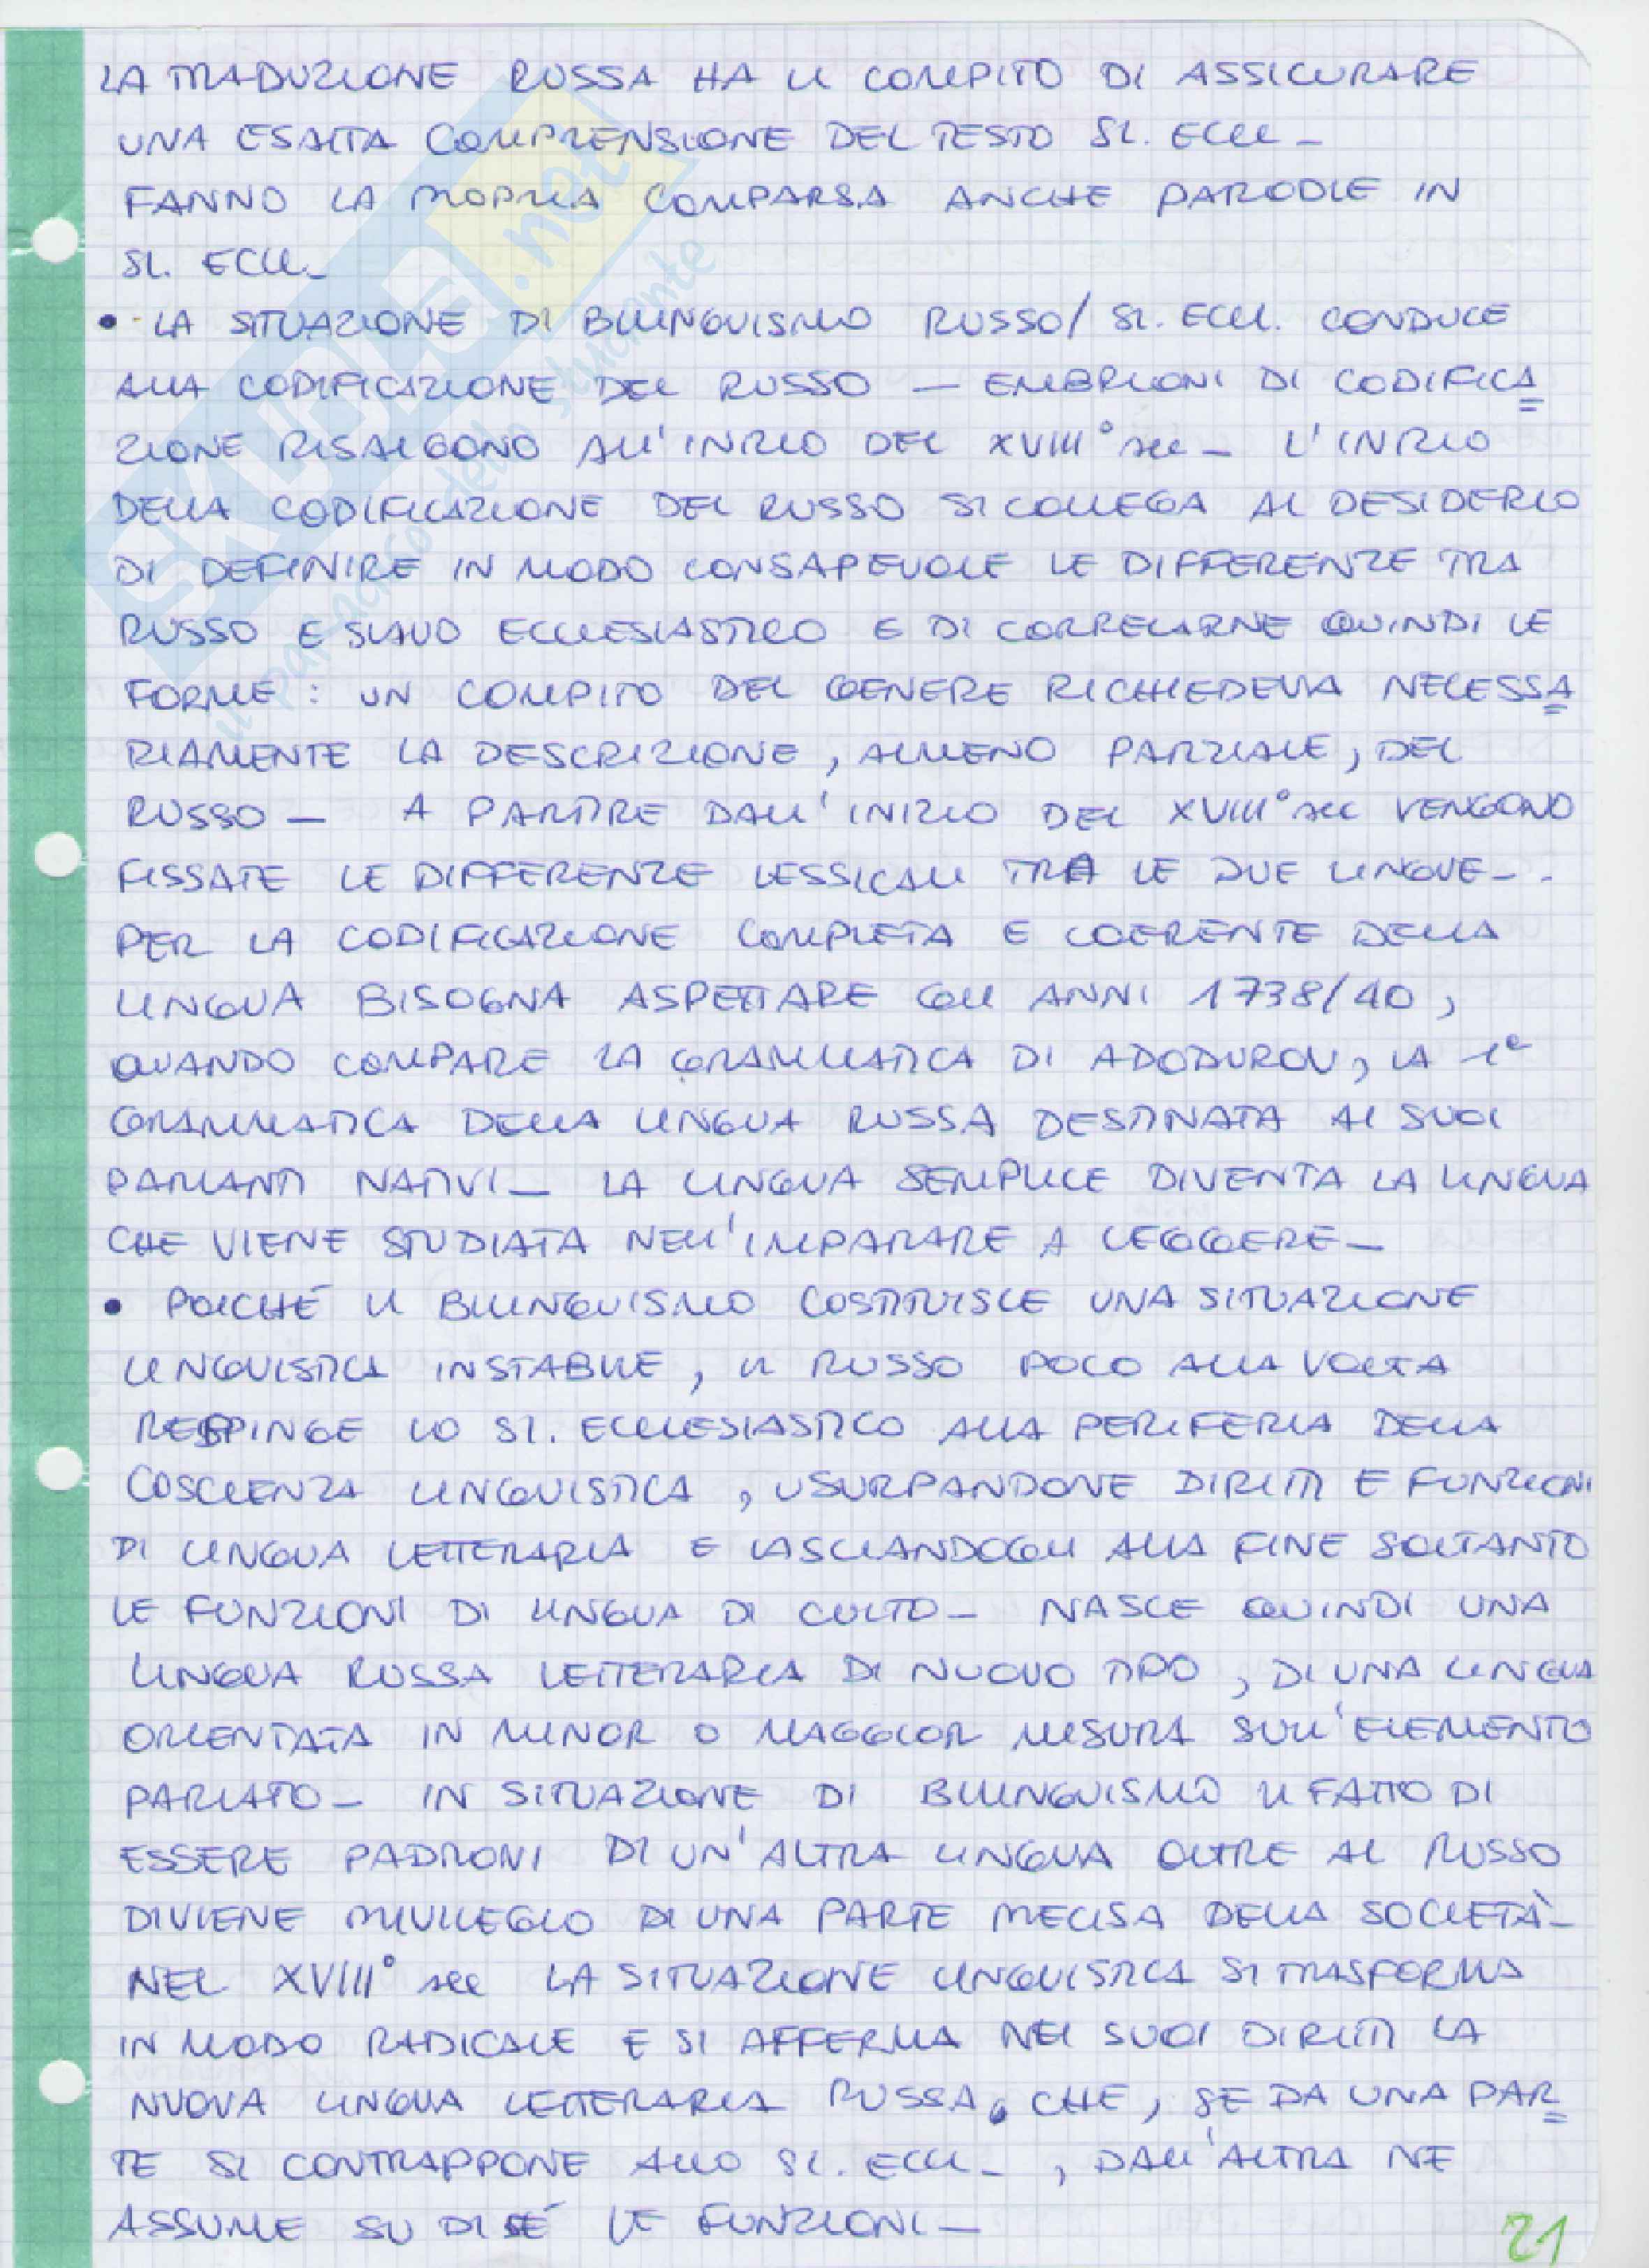 LA TRADUZIONE RUSSA HA IL COMPITO DI ASSICURARE
UNA ESATTA COMPRENSIONE DEL TESTO SL. ECCL –
FANNO LA PROPRIA COMPARSA ANCHE PARODIE IN
SL. ECCL –
• - LA SITUAZIONE DI BILINGUISMO RUSSO/ SL. ECCL. CONDUCE
ALLA CODIFICAZIONE DEL RUSSO – EMBRIONI DI CODIFICA
ZIONE RISALGONO ALL'INIZIO DEL XVIII° sec – L'INIZIO
DELLA CODIFICAZIONE DEL RUSSO SI COLLEGA AL DESIDERIO
DI DEFINIRE IN MODO CONSAPEVOLE LE DIFFERENZE TRA
RUSSO E SLAVO ECCLESIASTICO E DI CORRELARNE QUINDI LE
FORME : UN COMPITO DEL GENERE RICHIEDEVA NECESSA
RIAMENTE LA DESCRIZIONE, ALMENO PARZIALE, DEL
RUSSO – A PARTIRE DALL'INIZIO DEL XVIII° sec VENGONO
FISSATE LE DIFFERENZE LESSICALI TRA LE DUE LINGUE – .
PER LA CODIFICAZIONE COMPLETA E COERENTE DELLA
LINGUA BISOGNA ASPETTARE GLI ANNI 1738/40,
QUANDO COMPARE LA GRAMMATICA DI ADODUROV, LA 1ª
GRAMMATICA DELLA LINGUA RUSSA DESTINATA AI SUOI
PARLANTI NATIVI – LA LINGUA SEMPLICE DIVENTA LA LINGUA
CHE VIENE STUDIATA NELL'IMPARARE A LEGGERE –
• POICHÉ IL BILINGUISMO COSTITUISCE UNA SITUAZIONE
LINGUISTICA INSTABILE, IL RUSSO POCO ALLA VOLTA
RESPINGE LO SL. ECCLESIASTICO ALLA PERIFERIA DELLA
COSCIENZA LINGUISTICA, USURPANDONE DIRITTI E FUNZIONI
DI LINGUA LETTERARIA E LASCIANDOGLI ALLA FINE SOLTANTO
LE FUNZIONI DI LINGUA DI CULTO – NASCE QUINDI UNA
LINGUA RUSSA LETTERARIA DI NUOVO TIPO, DI UNA LINGUA
ORIENTATA IN MINOR O MAGGIOR MISURA SULL'ELEMENTO
PARLATO – IN SITUAZIONE DI BILINGUISMO IL FATTO DI
ESSERE PADRONI DI UN'ALTRA LINGUA OLTRE AL RUSSO
DIVIENE PRIVILEGIO DI UNA PARTE PRECISA DELLA SOCIETÀ –
NEL XVIII° sec LA SITUAZIONE LINGUISTICA SI TRASFORMA
IN MODO RADICALE E SI AFFERMA NEI SUOI DIRITTI LA
NUOVA LINGUA LETTERARIA RUSSA, CHE, SE DA UNA PAR
TE SI CONTRAPPONE ALLO SL. ECCL –, DALL'ALTRA NE
ASSUME SU DI SÉ LE FUNZIONI –
21
SKUOLA.net
il paradiso dello studente